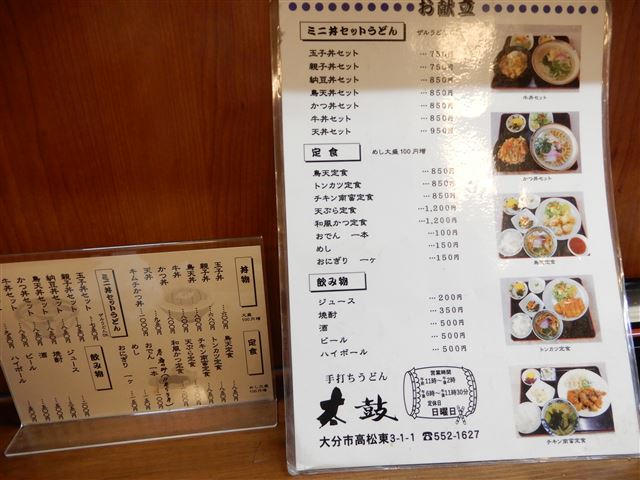 お献立
ミニ丼セットうどん
玉子丼セット …750円
親子丼セット …750円
納豆丼セット …850円
鳥天丼セット …850円
かつ丼セット …850円
牛丼セット …850円
天丼セット …950円
定食 めし大盛100円増
鳥天定食 …850円
トンカツ定食 …850円
チキン南蛮定食 …850円
天ぷら定食 …1,200円
和風かつ定食 …1,200円
おでん 一本 …100円
めし …150円
おにぎり 一ヶ …150円
飲み物
ジュース …200円
焼酎 …350円
酒 …500円
ビール …500円
ハイボール …500円
手打ちうどん
太鼓
営業時間
11時〜2時
6時〜11時30分
定休日
日曜日
大分市高松東3-1-1 ☎552-1627
牛丼セット
かつ丼セット
鳥天定食
トンカツ定食
チキン南蛮定食
丼物
大盛100円増
玉子丼
親子丼
鳥天丼
牛丼
かつ丼
天丼
キムチかつ丼
定食
めし大盛100円増
鳥天定食
トンカツ定食
チキン南蛮定食
天ぷら定食
和風かつ定食
おでん 一本
めし
おにぎり 一ヶ
ミニ丼セットうどん
玉子丼セット
親子丼セット
納豆丼セット
鳥天丼セット
かつ丼セット
牛丼セット
天丼セット
飲み物
ジュース
焼酎
酒
ビール
ハイボール